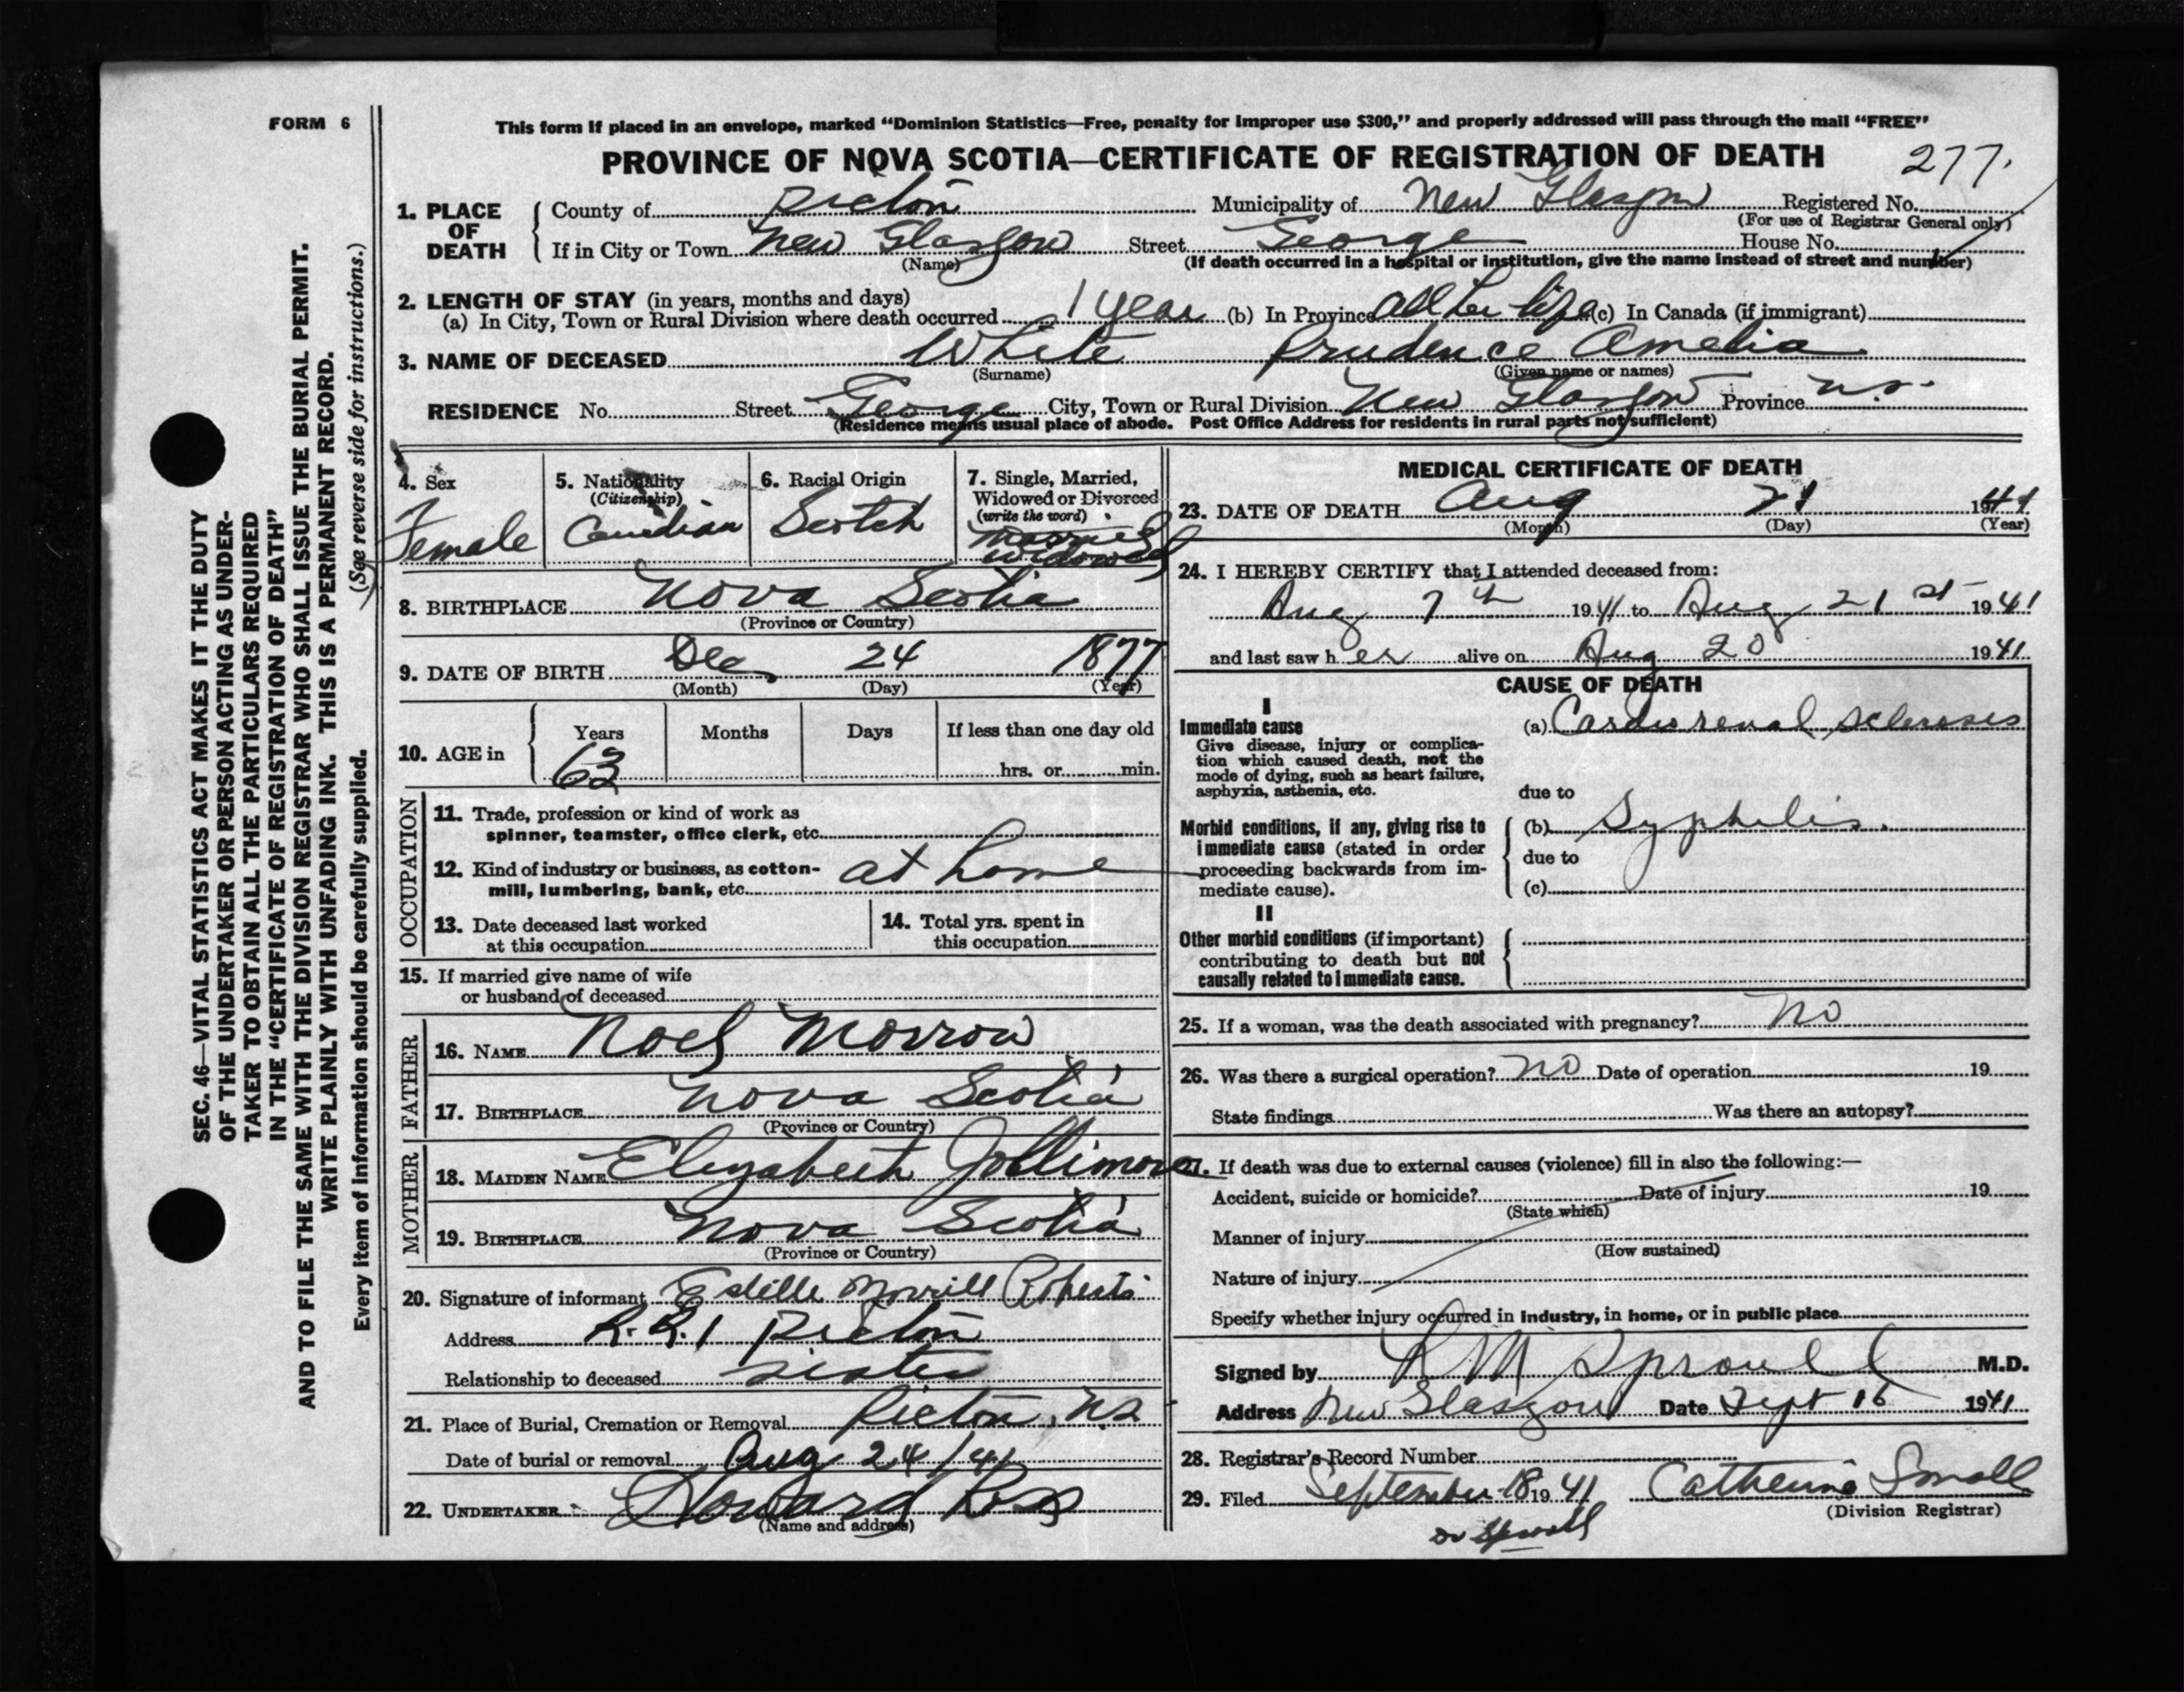 FORM 6
This form if placed in an envelope, marked "Dominion Statistics—Free, penalty for improper use $300," and properly addressed will pass through the mail "FREE"
PROVINCE OF NOVA SCOTIA—CERTIFICATE OF REGISTRATION OF DEATH 277.
1. PLACE OF DEATH County of Pictou Municipality of New Glasgow Registered No.
(For use of Registrar General only)
If in City or Town New Glasgow Street George House No.
(Name) (If death occurred in a hospital or institution, give the name instead of street and number)
2. LENGTH OF STAY (in years, months and days)
(a) In City, Town or Rural Division where death occurred 1 year (b) In Province all her life (c) In Canada (if immigrant)
3. NAME OF DECEASED White Prudence Amelia
(Surname) (Given name or names)
RESIDENCE No. Street George City, Town or Rural Division New Glasgow Province N.S.
(Residence means usual place of abode. Post Office Address for residents in rural parts not sufficient)
4. Sex
Female
5. Nationality
(Citizenship)
Canadian
6. Racial Origin
Scotch
7. Single, Married,
Widowed or Divorced
(write the word)
Married
Widowed
8. BIRTHPLACE Nova Scotia
(Province or Country)
9. DATE OF BIRTH Dec 24 1877
(Month) (Day) (Year)
10. AGE in
Years Months Days If less than one day old
63 hrs. or min.
OCCUPATION
11. Trade, profession or kind of work as
spinner, teamster, office clerk, etc.
12. Kind of industry or business, as cotton-
mill, lumbering, bank, etc. at home
13. Date deceased last worked
at this occupation
14. Total yrs. spent in
this occupation
15. If married give name of wife
or husband of deceased
FATHER
16. NAME Noel Morrow
17. BIRTHPLACE Nova Scotia
(Province or Country)
MOTHER
18. MAIDEN NAME Elizabeth Jollimore
19. BIRTHPLACE Nova Scotia
(Province or Country)
20. Signature of informant Estelle Morrill Roberts
Address R.R.1 Pictou
Relationship to deceased sister
21. Place of Burial, Cremation or Removal Pictou, NS
Date of burial or removal Aug 24/41
22. UNDERTAKER Howard Ross
(Name and address)
MEDICAL CERTIFICATE OF DEATH
23. DATE OF DEATH Aug 21 1941
(Month) (Day) (Year)
24. I HEREBY CERTIFY that I attended deceased from:
Aug 7th 1941 to Aug 21st 1941
and last saw her alive on Aug 20 1941
CAUSE OF DEATH
I
Immediate cause
Give disease, injury or complica-
tion which caused death, not the
mode of dying, such as heart failure,
asphyxia, asthenia, etc.
(a) Cardio renal sclerosis
due to
Morbid conditions, if any, giving rise to
immediate cause (stated in order
proceeding backwards from im-
mediate cause).
(b) Syphilis.
due to
(c)
II
Other morbid conditions (if important)
contributing to death but not
causally related to immediate cause.
25. If a woman, was the death associated with pregnancy? No
26. Was there a surgical operation? No Date of operation 19
State findings Was there an autopsy?
27. If death was due to external causes (violence) fill in also the following:—
Accident, suicide or homicide? Date of injury 19
(State which)
Manner of injury
(How sustained)
Nature of injury
Specify whether injury occurred in industry, in home, or in public place
Signed by R M Sproull M.D.
Address New Glasgow Date Sept 16 1941
28. Registrar's Record Number
29. Filed September 18 1941 Catherine Small
(Division Registrar)
Dr Sproull
SEC. 46—VITAL STATISTICS ACT MAKES IT THE DUTY
OF THE UNDERTAKER OR PERSON ACTING AS UNDER-
TAKER TO OBTAIN ALL THE PARTICULARS REQUIRED
IN THE "CERTIFICATE OF REGISTRATION OF DEATH"
AND TO FILE THE SAME WITH THE DIVISION REGISTRAR WHO SHALL ISSUE THE BURIAL PERMIT.
WRITE PLAINLY WITH UNFADING INK. THIS IS A PERMANENT RECORD.
Every item of information should be carefully supplied. (See reverse side for instructions.)